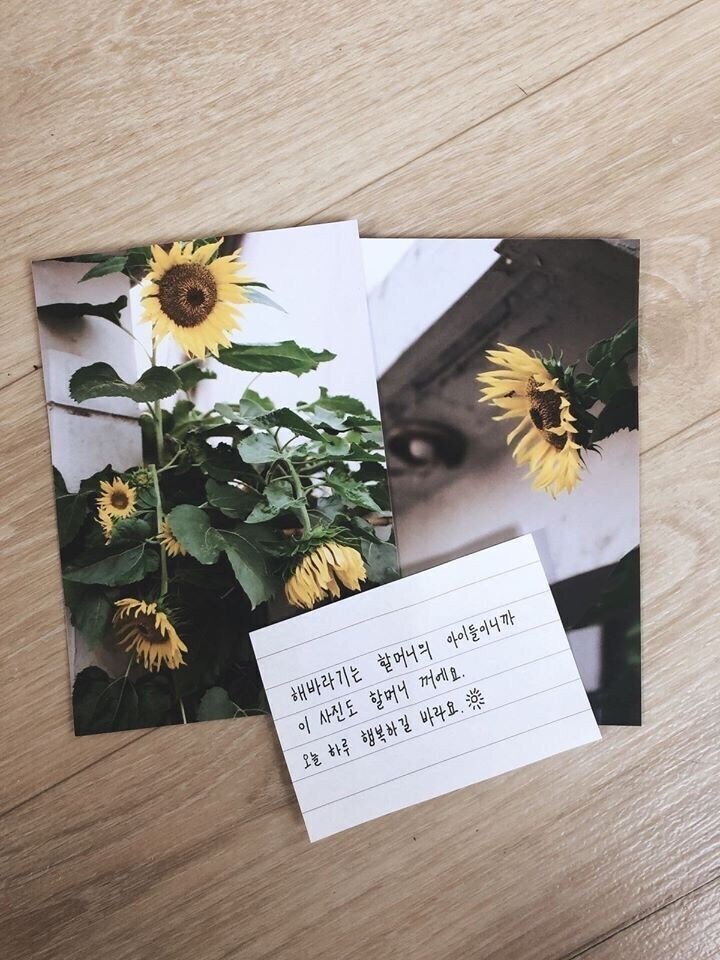 해바라기는 할머니의 아이들이니까
이 사진도 할머니 꺼에요.
오늘 하루 행복하길 바라요.